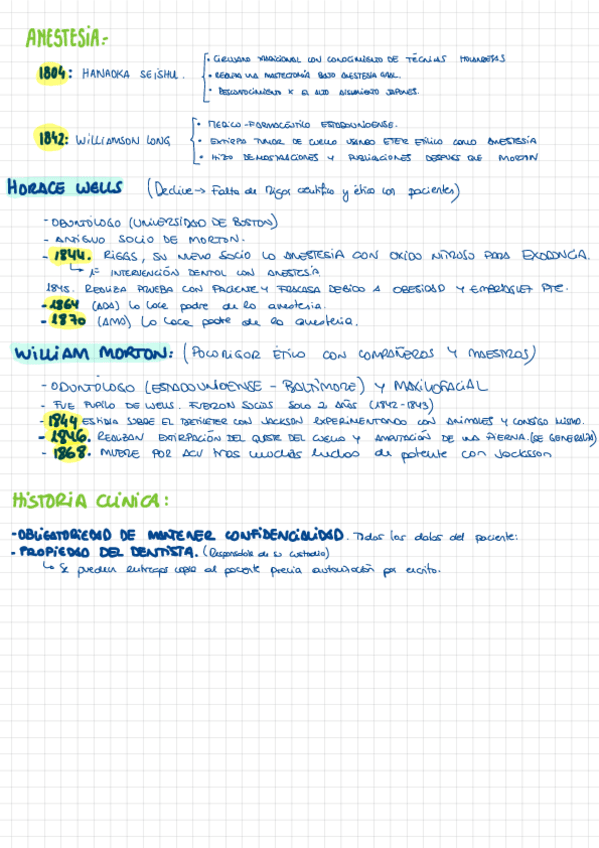 ANESTESIA:
1804: HANAOKA SEISHU.
• CIRUJANO TRADICIONAL CON CONOCIMIENTO DE TÉCNICAS HOLANDESAS
• REALIZA UNA MASTECTOMÍA BAJO ANESTESIA GRAL.
• DESCONOCIMIENTO X EL ALTO AISLAMIENTO JAPONES.
1842: WILLIAMSON LONG
• MEDICO-FARMACÉUTICO ESTADOUNIDENSE.
• EXTIRPA TUMOR DE CUELLO USANDO ETER ETÍLICO COMO ANESTESIA
• HIZO DEMOSTRACIONES Y PUBLICACIONES DESPUES QUE MORTON
HORACE WELLS (Declive → Falta de Rigor científico y ético con pacientes)
- ODONTÓLOGO (UNIVERSIDAD DE BOSTON)
- ANTIGUO SOCIO DE MORTON.
- 1844. RIGGS, SU NUEVO SOCIO LO ANESTESIA CON OXIDO NITROSO PARA EXODONCIA.
↳ 1ª INTERVENCIÓN DENTAL CON ANESTESIA
1845. REALIZA PRUEBA CON PACIENTE Y FRACASA DEBIDO A OBESIDAD Y EMBRIAGUEZ PTE.
- 1864 (ADA) lo hace padre de la anestesia.
- 1870 (AMA) Lo hace padre de la anestesia.
WILLIAM MORTON: (POCO RIGOR ÉTICO CON COMPAÑEROS Y MAESTROS)
- ODONTÓLOGO (ESTADOUNIDENSE - BALTIMORE) Y MAXILOFACIAL
- FUE PUPILO DE WELLS. FUERON SOCIOS SOLO 2 AÑOS (1842-1843)
- 1844 ESTUDIA SOBRE EL DIETILETER CON JACKSON EXPERIMENTANDO CON ANIMALES Y CONSIGO MISMO.
- 1846. REALIZAN EXTIRPACIÓN DEL QUISTE DEL CUELLO Y AMPUTACIÓN DE UNA PIERNA. (SE GENERALIZA)
- 1868. MUERE POR ACV tras muchas luchas de patente con Jackson
HISTORIA CLINICA:
- OBLIGATORIEDAD DE MANTENER CONFIDENCIALIDAD. Todos los datos del paciente:
- PROPIEDAD DEL DENTISTA. (Responsable de su custodia)
↳ Se pueden entregar copia al paciente previa autorización por escrito.